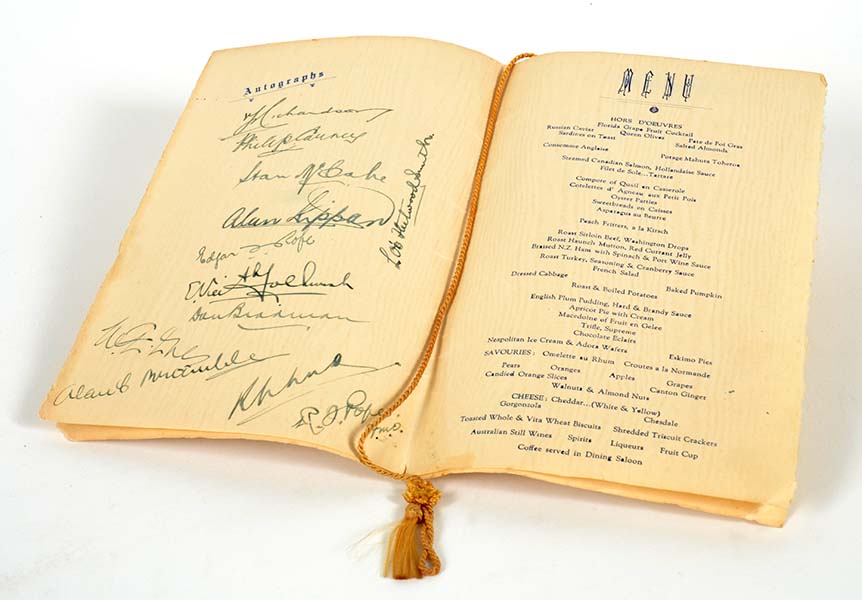 Autographs
V Richardson
Stan McCabe
Alan Kippax
L O'B Fleetwood Smith
Edgar
Don Bradman
R. J. Pope
M.D.
MENU
HORS D'OEUVRES
Florida Grape Fruit Cocktail
Russian Caviar Queen Olives Pate de Foi Gras
Sardines on Toast Salted Almonds
Consomme Anglaise Potage Mahuta Toheroa
Steemed Canadian Salmon, Hollandaise Sauce
Filet de Sole...Tartare
Compote of Quail en Casserole
Cotelettes d' Agneau aux Petit Pois
Oyster Parties
Sweetbreads en Caisses
Asparagus au Beurre
Peach Fritters, a la Kirsch
Roast Sirloin Beef, Washington Drops
Roast Haunch Mutton, Red Currant Jelly
Braised N.Z. Ham with Spinach & Port Wine Sauce
Roast Turkey, Seasoning & Cranberry Sauce
French Salad
Dressed Cabbage Baked Pumpkin
Roast & Boiled Potatoes
English Plum Pudding, Hard & Brandy Sauce
Apricot Pie with Cream
Macedoine of Fruit en Gelee
Trifle, Supreme
Chocolate Eclairs
Neopolitan Ice Cream & Adora Wafers Eskimo Pies
SAVOURIES: Omelette au Rhum Croutes a la Normande
Pears Oranges Apples Grapes
Candied Orange Slices Canton Ginger
Walnuts & Almond Nuts
CHEESE: Cheddar...(White & Yellow)
Gorgonzola Chesdale
Toasted Whole & Vita Wheat Biscuits Shredded Triscuit Crackers
Australian Still Wines Spirits Liqueurs Fruit Cup
Coffee served in Dining Saloon